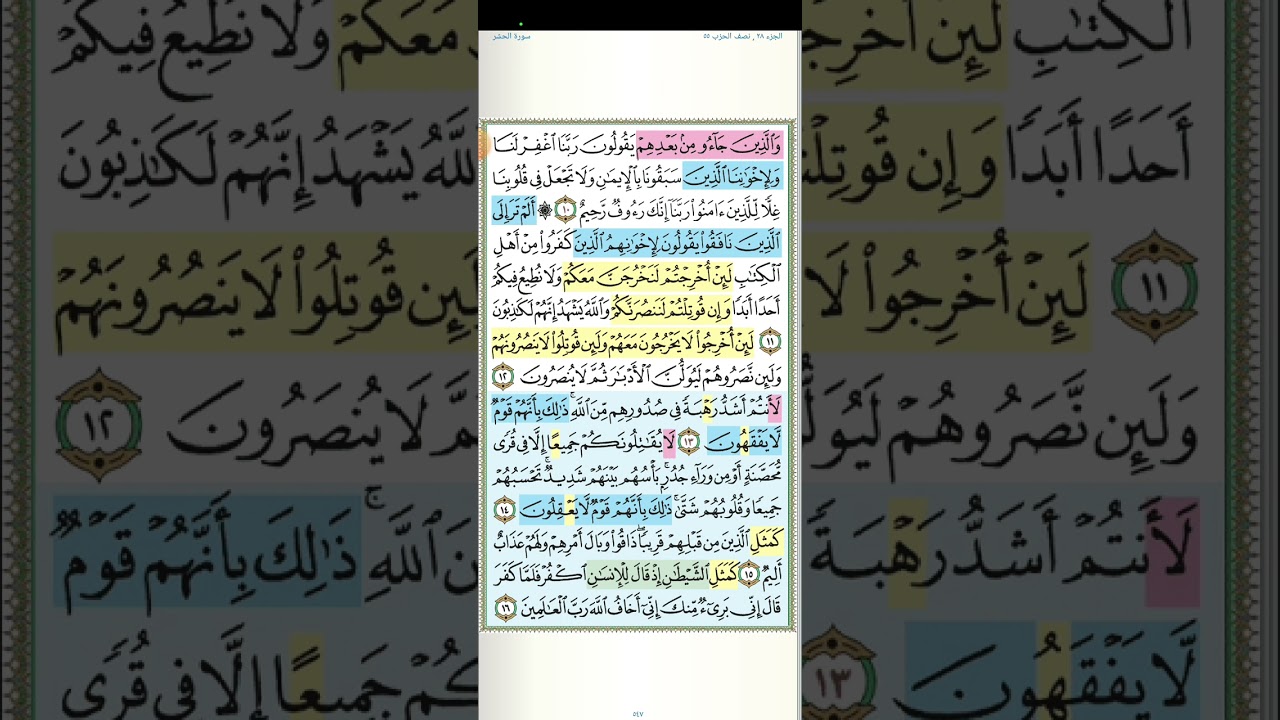 الجزء ٢٨ , نصف الحزب ٥٥
سورة الحشر
وَٱلَّذِينَ جَآءُو مِنۢ بَعۡدِهِمۡ يَقُولُونَ رَبَّنَا ٱغۡفِرۡ لَنَا
وَلِإِخۡوَٰنِنَا ٱلَّذِينَ سَبَقُونَا بِٱلۡإِيمَٰنِ وَلَا تَجۡعَلۡ فِي قُلُوبِنَا
غِلّٗا لِّلَّذِينَ ءَامَنُواْ رَبَّنَآ إِنَّكَ رَءُوفٞ رَّحِيمٌ ١٠ ۞ أَلَمۡ تَرَ إِلَى
ٱلَّذِينَ نَافَقُواْ يَقُولُونَ لِإِخۡوَٰنِهِمُ ٱلَّذِينَ كَفَرُواْ مِنۡ أَهۡلِ
ٱلۡكِتَٰبِ لَئِنۡ أُخۡرِجۡتُمۡ لَنَخۡرُجَنَّ مَعَكُمۡ وَلَا نُطِيعُ فِيكُمۡ
أَحَدًا أَبَدٗا وَإِن قُوتِلۡتُمۡ لَنَنصُرَنَّكُمۡ وَٱللَّهُ يَشۡهَدُ إِنَّهُمۡ لَكَٰذِبُونَ
١١ لَئِنۡ أُخۡرِجُواْ لَا يَخۡرُجُونَ مَعَهُمۡ وَلَئِن قُوتِلُواْ لَا يَنصُرُونَهُمۡ
وَلَئِن نَّصَرُوهُمۡ لَيُوَلُّنَّ ٱلۡأَدۡبَٰرَ ثُمَّ لَا يُنصَرُونَ ١٢
لَأَنتُمۡ أَشَدُّ رَهۡبَةٗ فِي صُدُورِهِم مِّنَ ٱللَّهِۚ ذَٰلِكَ بِأَنَّهُمۡ قَوۡمٞ
لَّا يَفۡقَهُونَ ١٣ لَا يُقَٰتِلُونَكُمۡ جَمِيعًا إِلَّا فِي قُرٗى
مُّحَصَّنَةٍ أَوۡ مِن وَرَآءِ جُدُرِۭۚ بَأۡسُهُم بَيۡنَهُمۡ شَدِيدٞۚ تَحۡسَبُهُمۡ
جَمِيعٗا وَقُلُوبُهُمۡ شَتَّىٰۚ ذَٰلِكَ بِأَنَّهُمۡ قَوۡمٞ لَّا يَعۡقِلُونَ ١٤
كَمَثَلِ ٱلَّذِينَ مِن قَبۡلِهِمۡ قَرِيبٗاۖ ذَاقُواْ وَبَالَ أَمۡرِهِمۡ وَلَهُمۡ عَذَابٌ
أَلِيمٞ ١٥ كَمَثَلِ ٱلشَّيۡطَٰنِ إِذۡ قَالَ لِلۡإِنسَٰنِ ٱكۡفُرۡ فَلَمَّا كَفَرَ
قَالَ إِنِّي بَرِيٓءٞ مِّنكَ إِنِّيٓ أَخَافُ ٱللَّهَ رَبَّ ٱلۡعَٰلَمِينَ ١٦
٥٤٧